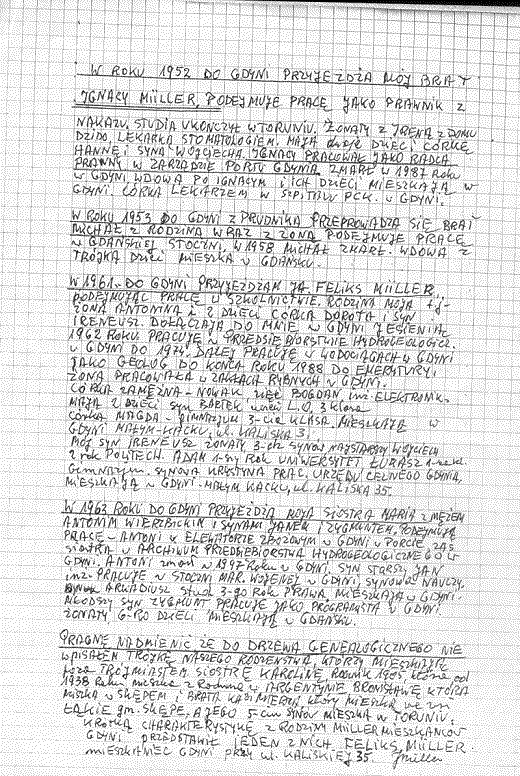 W ROKU 1952 DO GDYNI PRZYJEŻDŻA MÓJ BRAT
IGNACY MÜLLER, PODEJMUJE PRACĘ JAKO PRAWNIK Z
NAKAZU, STUDIA UKOŃCZYŁ W TORUNIU. ŻONATY Z IRENĄ Z DOMU
DZIDO, LEKARKĄ STOMATOLOGIEM. MAJĄ dwoje DZIECI CÓRKĘ
HANNĘ i SYNA WOJCIECHA. IGNACY PRACOWAŁ JAKO RADCA
PRAWNY W ZARZĄDZIE PORTU GDYNIA ZMARŁ W 1987 roku
W GDYNI. WDOWA PO IGNACYM i ICH DZIECI MIESZKAJĄ W
GDYNI. CÓRKA LEKARZEM W SZPITALU PCK. W GDYNI.
W ROKU 1953 DO GDYNI Z PRUDNIKA PRZEPROWADZA SIĘ BRAT
MICHAŁ Z RODZINĄ WRAZ Z ŻONĄ PODEJMUJE PRACĘ
W GDAŃSKIEJ STOCZNI, W 1958 MICHAŁ ZMARŁ. WDOWA Z
TRÓJKĄ DZIECI MIESZKA W GDAŃSKU.
W 1961 DO GDYNI PRZYJEŻDŻAM JA FELIKS MÜLLER,
PODEJMUJĄC PRACĘ W SZKOLNICTWIE. RODZINA MOJA tj-
ŻONA ANTONINA i 2 DZIECI CÓRKA DOROTA i SYN
IRENEUSZ DOŁĄCZAJĄ DO MNIE W GDYNI JESIENIĄ
1962 ROKU. PRACUJĘ W PRZEDSIĘBIORSTWIE HYDROGEOLOGICZ.
W GDYNI DO 1974. DALEJ PRACUJĘ W WODOCIĄGACH W GDYNI
JAKO GEOLOG DO KOŃCA ROKU 1988 DO EMERYTURY.
ŻONA PRACOWAŁA W ZAKŁADACH RYBNYCH W GDYNI.
CÓRKA ZAMĘŻNA - NOWAK mąż BOGDAN, inż. ELEKTRONIK
MAJĄ 2 DZIECI syn BARTEK uczeń L.O. 3 klasa
CÓRKA MAGDA - GIMNAZJUM 3-cia KLASA. MIESZKAJĄ W
GDYNI MAŁYM-KACKU, ul. KALISKA 3
MÓJ SYN IRENEUSZ ŻONATY 3-ch SYNÓW NAJSTARSZY WOJCIECH
2 rok POLITECH. ADAM 1-szy Rok UNIWERSYTET ŁUKASZ 1-sza kl.
Gimnazjum. SYNOWA KRYSTYNA PRAC. URZĘDU CELNEGO GDYNIA,
MIESZKAJĄ W GDYNI-MAŁYM KACKU, ul. KALISKA 35.
W 1963 ROKU DO GDYNI PRZYJEŻDŻA MOJA SIOSTRA MARIA z MĘŻEM
ANTONIM WIERZBICKIM i SYNAMI JANEM i ZYGMUNTEM, PODEJMUJĄ
PRACĘ - ANTONI W ELEWATORZE ZBOŻOWYM W GDYNI W PORCIE ZAŚ
SIOSTRA W ARCHIWUM PRZEDSIĘBIORSTWA HYDROGEOLOGICZNEGO W
GDYNI. ANTONI zmarł W 1997 Roku W GDYNI. SYN STARSZY JAN
inż. PRACUJE W STOCZNI MAR. WOJENNEJ W GDYNI, SYNOWA NAUCZY.
ARKADIUSZ stud. 3-go rok PRAWA, MIESZKAJĄ W GDYNI.
MŁODSZY SYN ZYGMUNT PRACUJE JAKO PROGRAMISTA W GDYNI.
ŻONATY, 6-RO DZIECI MIESZKAJĄ W GDAŃSKU.
PRAGNĘ NADMIENIĆ ŻE DO DRZEWA GENEALOGICZNEGO NIE
WPISAŁEM TRÓJKĘ NASZEGO RODZEŃSTWA, KTÓRZY MIESZKAJĄ
poza TRÓJMIASTEM SIOSTRĘ KAROLINĘ, Rocznik 1905, która od
1938 Roku mieszka z Rodziną W ARGENTYNIE BRONISŁAWĘ KTÓRA
MIESZKA W SKĘPEM i BRATA KAZIMIERZA, który MIESZKA
ŁĄKIE gm. SKĘPE, A JEGO 5-ciu SYNÓW MIESZKA W TORUNIU.
KRÓTKĄ CHARAKTERYSTYKĘ Z RODZINY MÜLLER MIESZKAŃCÓW
GDYNI PRZEDSTAWIŁ JEDEN Z NICH FELIKS MÜLLER
MIESZKANIEC GDYNI PRZY ul. KALISKIEJ 35. Jmüller